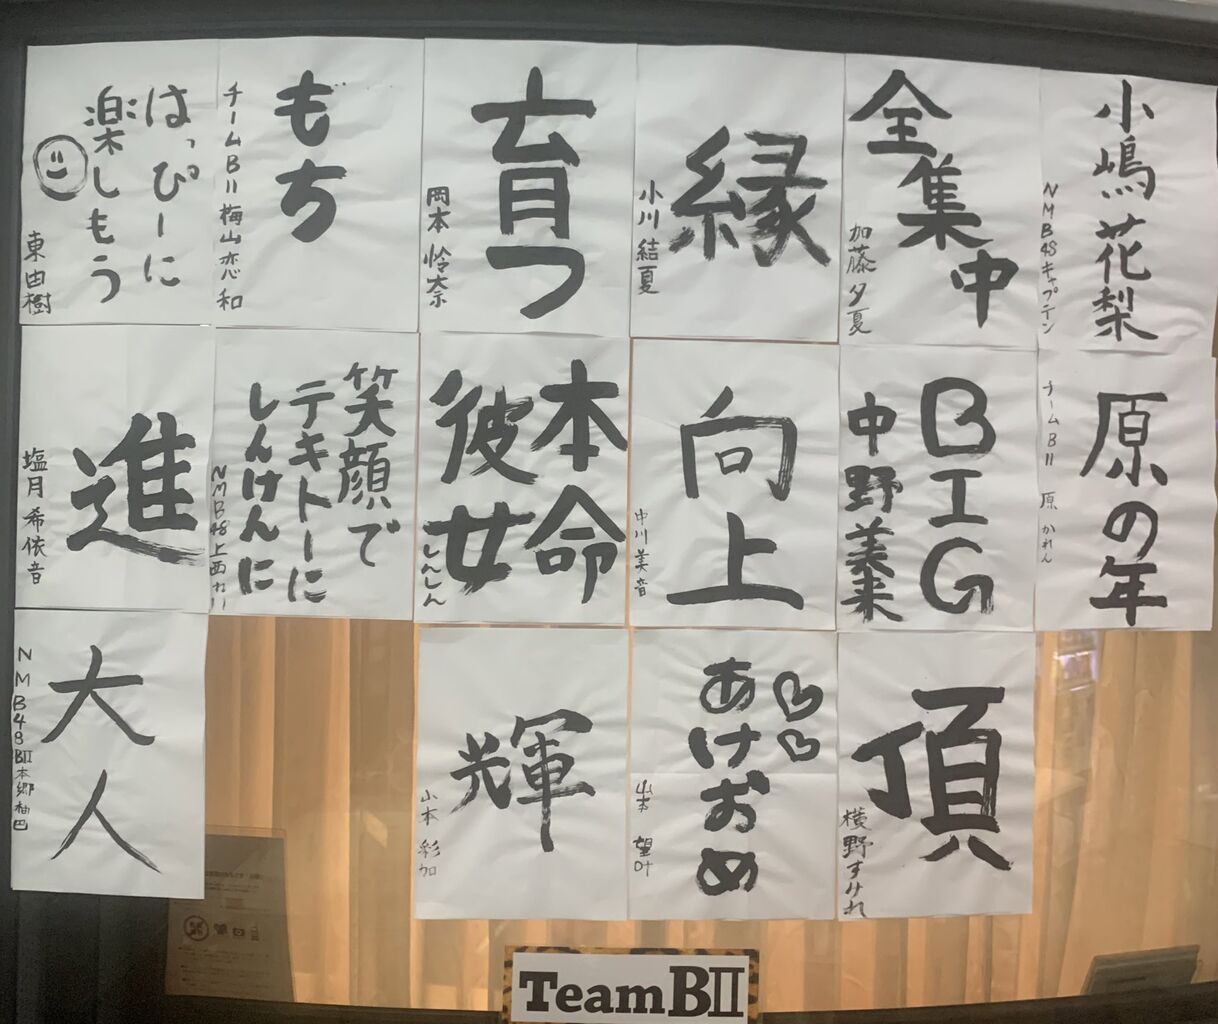 小嶋花梨
NMB48キャプテン
全集中
加藤夕夏
縁
小川結夏
育つ
岡本怜奈
もち
チームBⅡ梅山恋和
はっぴーに
楽しもう
東由樹
原の年
チームBⅡ 原かれん
BIG
中野美来
向上
中川美音
本命
彼女
しんしん
笑顔で
テキトーに
しんけんに
NMB48上西れい
進
塩月希依音
頂
横野すみれ
あけおめ
山本望叶
輝
山本彩加
大人
NMB48BⅡ本郷柚巴
TeamBⅡ